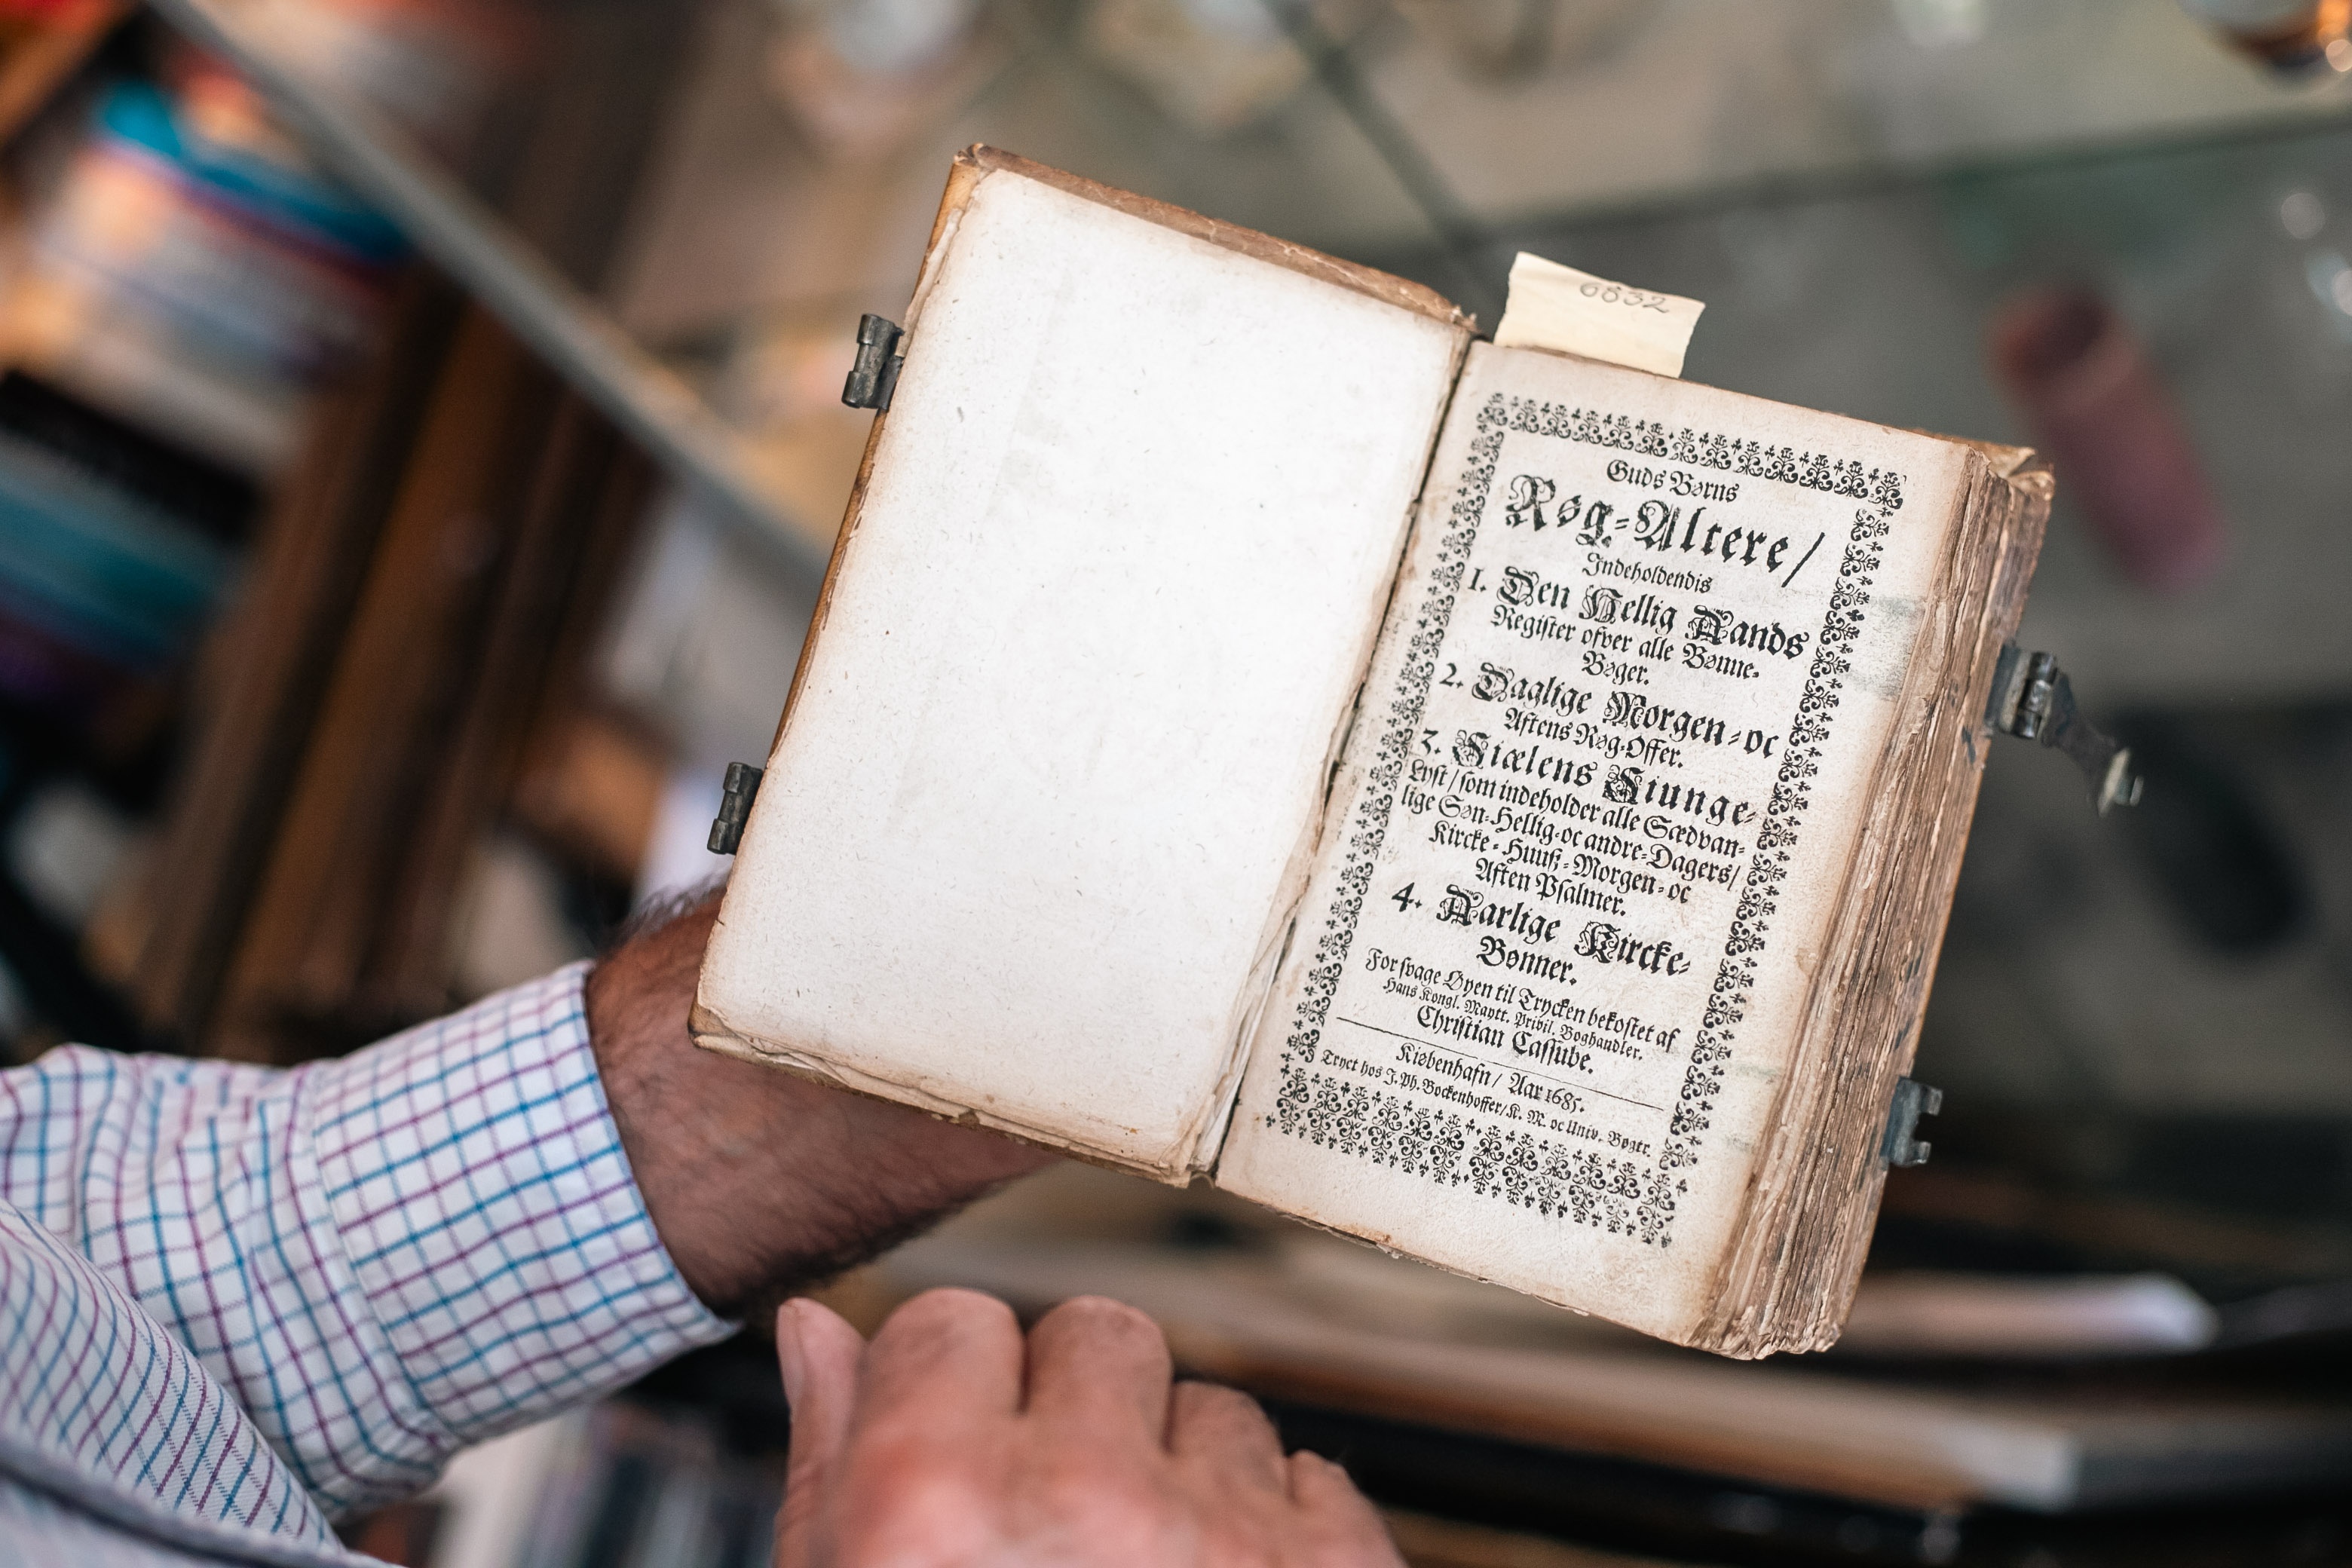 6832
Guds Børns
Røg-Altere/
Indeholdendis
1. Den Hellig Aands
Register ofver alle Bønne-
Bøger.
2. Daglige Morgen-oc
Aftens Røg-Offer.
3. Siælens Siunge-
Lyst/som indeholder alle Sædvan-
lige Søn-Hellig-oc andre-Dagers/
Kircke-Huuß-Morgen-oc
Aften Psalmer.
4. Aarlige Kircke-
Bønner.
For svage Øyen til Trycken bekostet af
Hans Kongl. Maytt. Privil. Boghandler.
Christian Cassube.
Kiøbenhafn/ Aar 1685.
Tryct hos J. Ph. Bockenhoffer/K. M. oc Univ. Bogtr.